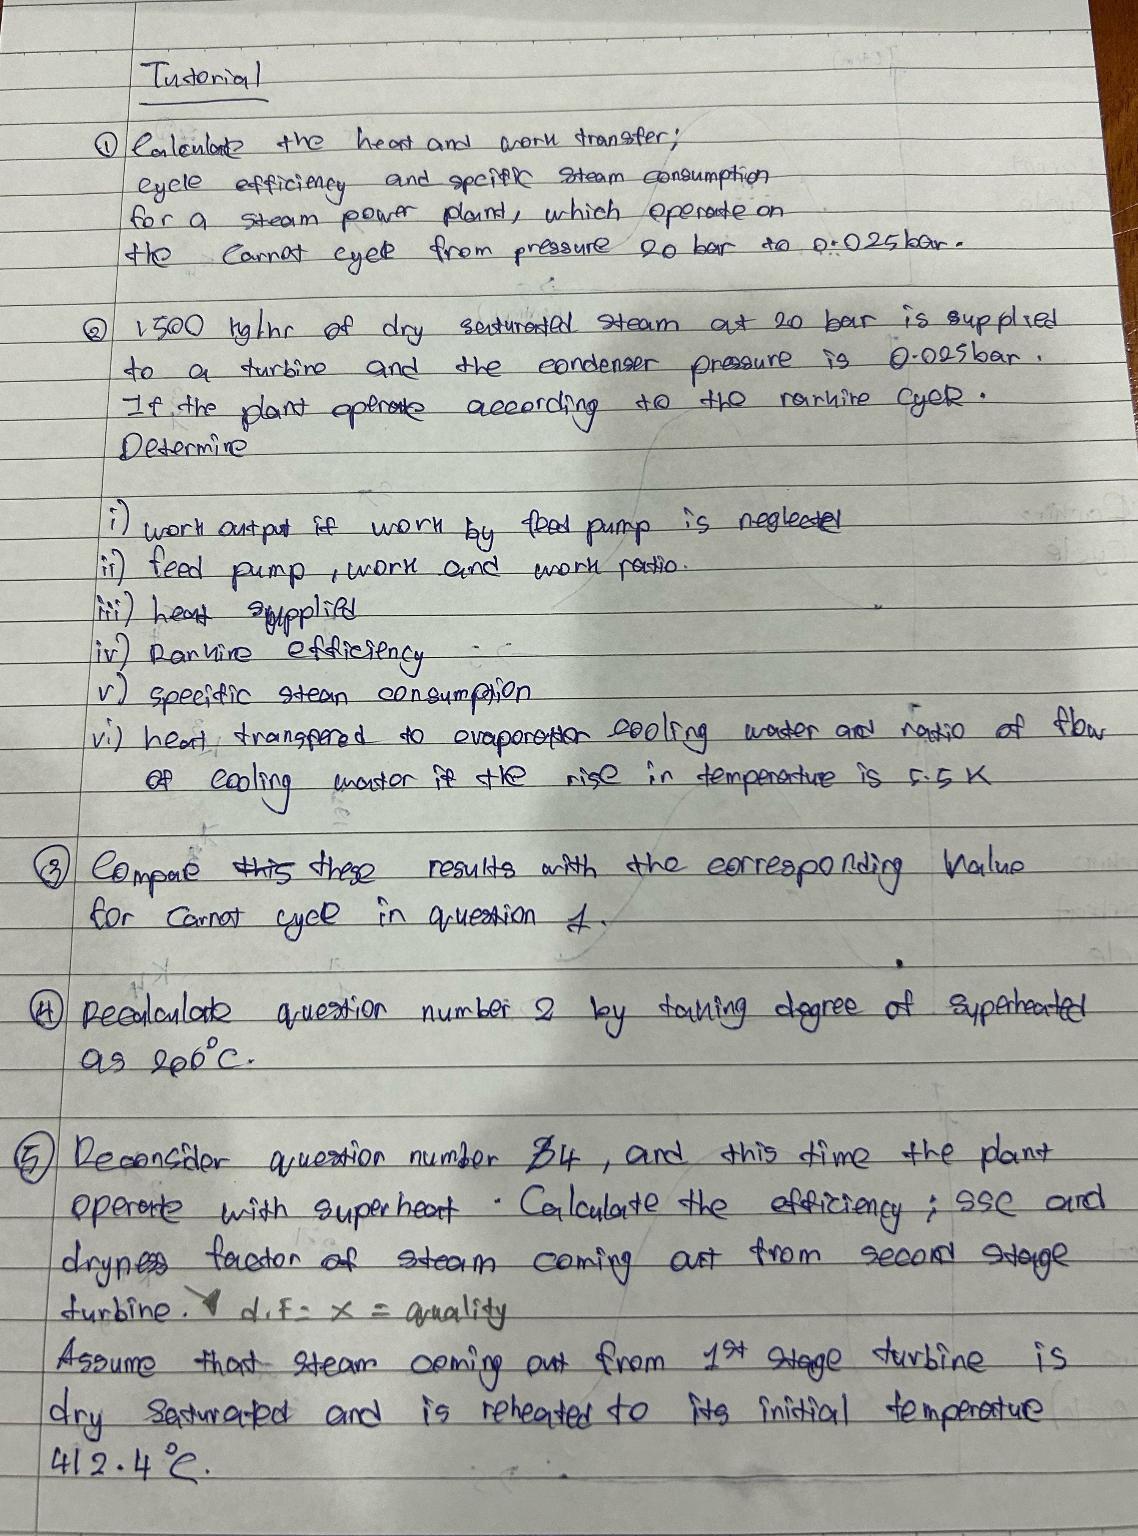 Tutorial
① Calculate the heat and work transfer;
cycle efficiency and specific steam consumption
for a steam power plant, which operate on
the Carnot cycle from pressure 20 bar to 0.025bar.
② 1500 kg/hr of dry saturated steam at 20 bar is supplied
to a turbine and the condenser pressure is 0.025bar.
If the plant operate according to the rankine cycle.
Determine
i) work output if work by feed pump is neglected
ii) feed pump, work and work ratio.
iii) heat supplied
iv) Rankine efficiency
v) specific steam consumption
vi) heat transfered to evaporator cooling water and ratio of flow
of cooling water if the rise in temperature is 5.5 K
③ Compare this these results with the corresponding value
for Carnot cycle in question 1.
④ Recalculate question number 2 by taking degree of superheated
as 200°C.
⑤ Reconsider question number 34, and this time the plant
operate with superheat. Calculate the efficiency; SSC and
dryness factor of steam coming out from second stage
turbine. d.F = x = quality
Assume that steam coming out from 1st stage turbine is
dry saturated and is reheated to its initial temperature
412.4°C.